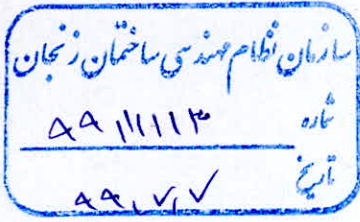 سازمان نظام مهندسی ساختمان زنجان
شماره
تاریخ ۹۹,۷,۷